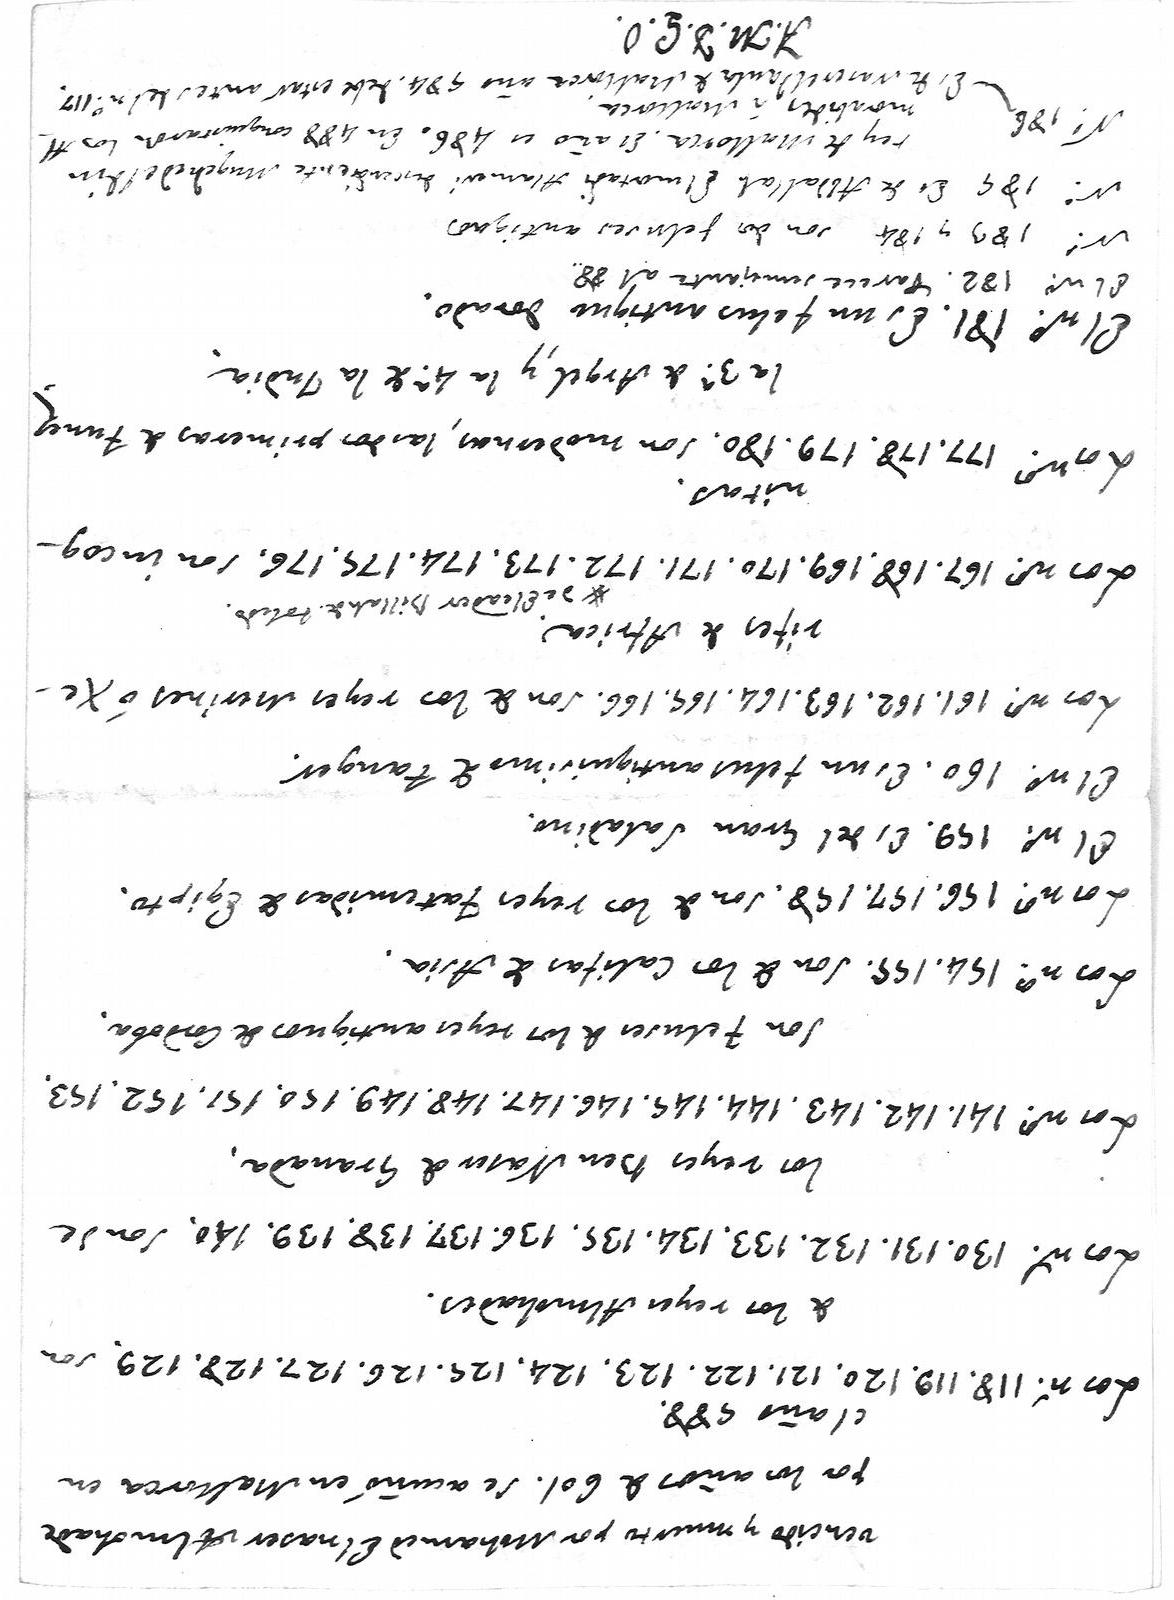 vencido y muerto por Mohamed Elnaser Almohade
por los años de 601. Se acuñó en Mallorca en
el año 588.
Los nº. 118. 119. 120. 121. 122. 123. 124. 125. 126. 127. 128. 129. son
de los reyes Almohades.
Los nº. 130. 131. 132. 133. 134. 135. 136. 137. 138. 139. 140. son de
los reyes Ben Naser de Granada.
Los nº. 141. 142. 143. 144. 145. 146. 147. 148. 149. 150. 151. 152. 153.
son Feluses de los reyes antiguos de Cordoba.
Los nº. 154. 155. son de los Califas de Asia.
Los nº. 156. 157. 158. son de los reyes Fatemidas de Egipto.
El nº. 159. Es del Gran Saladino.
El nº. 160. Es un felus antiquisimo de Tanger.
Los nº. 161. 162. 163. 164. 165. 166. son de los reyes Merines ó Xe-
rifes de Africa.
Billah de Toledo.
Los nº. 167. 168. 169. 170. 171. 172. 173. 174. 175. 176. son incog-
nitas.
Los nº. 177. 178. 179. 180. son modernas, las dos primeras de Tunez
la 3ª. de Argel, y la 4ª. de la India.
El nº. 181. Es un felus antiguo dorado.
El nº. 182. Parece semejante al 88.
Nº. 183 y 184 son dos feluses antiguos
Nº. 185 Es de Abdallah Elmortadi descendiente
rey de Mallorca. El año es 486. En 488 conquistaron los Al
moravides á Mallorca.
Nº. 186 Es de Mallorca año 584. debe estar antes del nº. 117.
A. M. D. G. O.